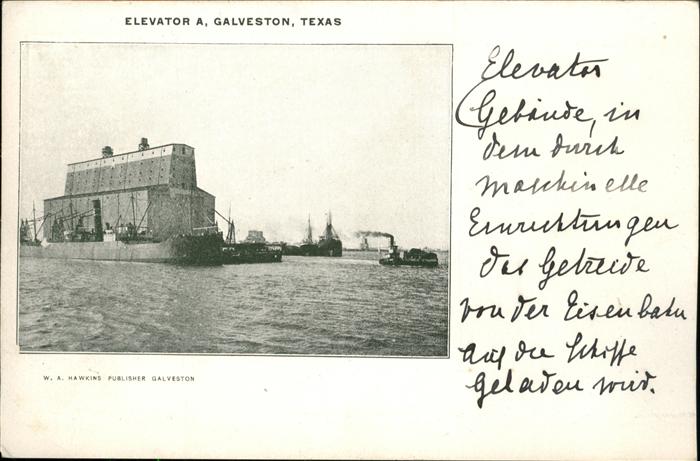 ELEVATOR A, GALVESTON, TEXAS
Elevator
(Gebäude, in
dem durch
maschinelle
Einrichtungen
das Getreide
von der Eisenbahn
auf die Schiffe
geladen wird.
W. A. HAWKINS PUBLISHER GALVESTON